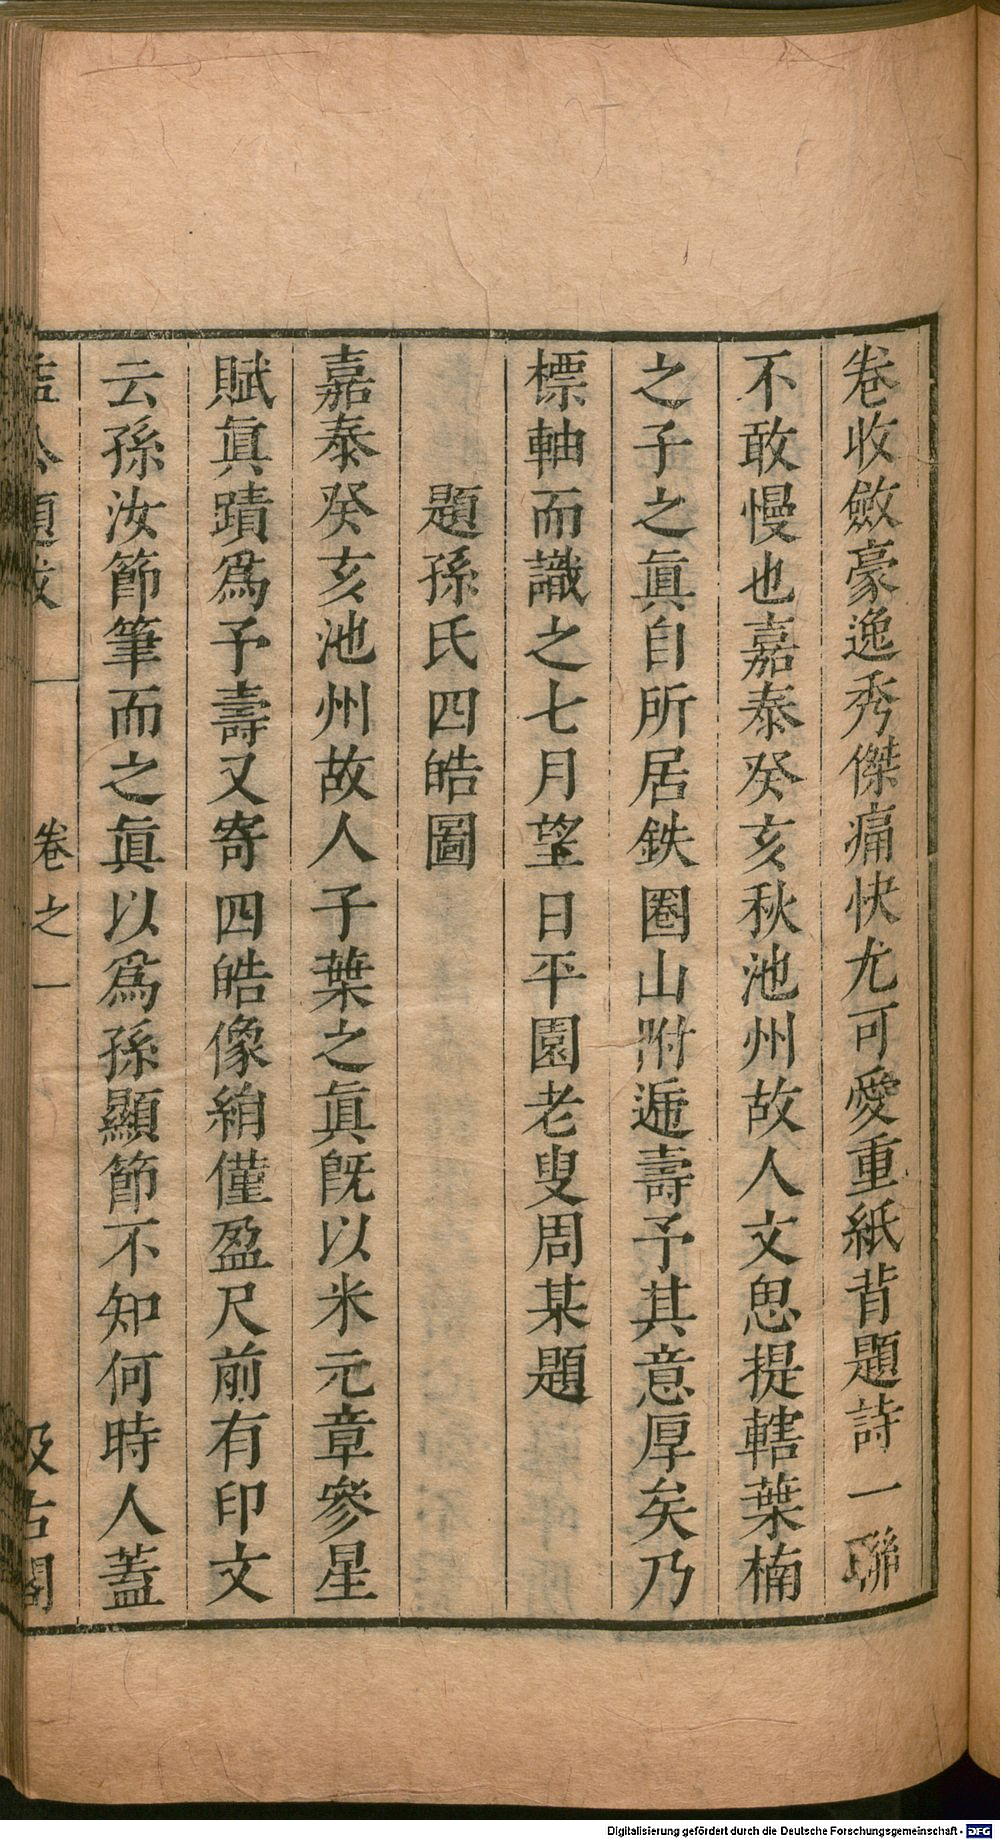 卷收斂豪逸秀傑痛快尤可愛重紙背題詩一聯
不敢慢也嘉泰癸亥秋池州故人文思提轄葉楠
之子之眞自所居鉄圏山附遞壽予其意厚矣乃
標軸而識之七月望日平園老叟周某題
題孫氏四皓圖
嘉泰癸亥池州故人子葉之眞旣以米元章參星
賦眞蹟爲予壽又寄四皓像絹僅盈尺前有印文
云孫汝節筆而之眞以爲孫顯節不知何時人蓋
益公題跋 卷之一 汲古閣
Digitalisierung gefördert durch die Deutsche Forschungsgemeinschaft - DFG